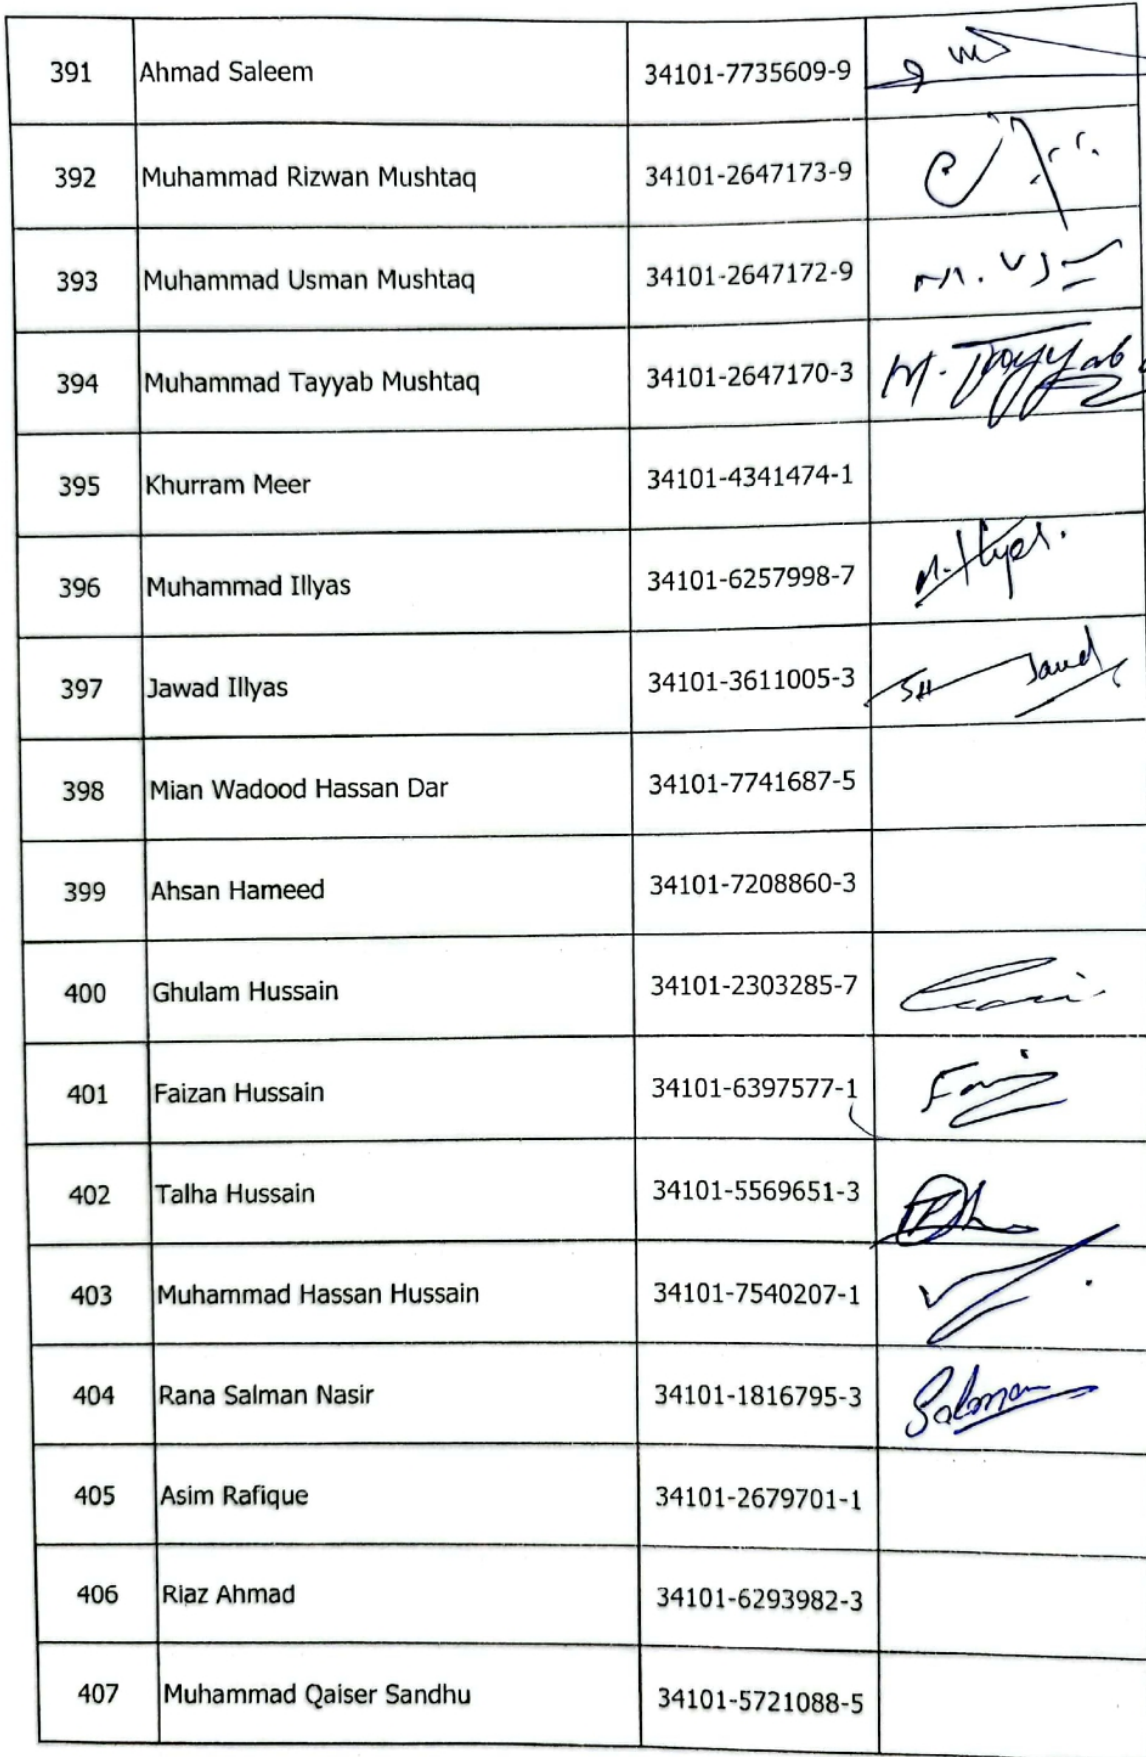 391 Ahmad Saleem 34101-7735609-9
392 Muhammad Rizwan Mushtaq 34101-2647173-9
393 Muhammad Usman Mushtaq 34101-2647172-9
394 Muhammad Tayyab Mushtaq 34101-2647170-3 M. Tayyab
395 Khurram Meer 34101-4341474-1
396 Muhammad Illyas 34101-6257998-7 M. Ilyas.
397 Jawad Illyas 34101-3611005-3
398 Mian Wadood Hassan Dar 34101-7741687-5
399 Ahsan Hameed 34101-7208860-3
400 Ghulam Hussain 34101-2303285-7
401 Faizan Hussain 34101-6397577-1
402 Talha Hussain 34101-5569651-3
403 Muhammad Hassan Hussain 34101-7540207-1
404 Rana Salman Nasir 34101-1816795-3 Salman
405 Asim Rafique 34101-2679701-1
406 Riaz Ahmad 34101-6293982-3
407 Muhammad Qaiser Sandhu 34101-5721088-5